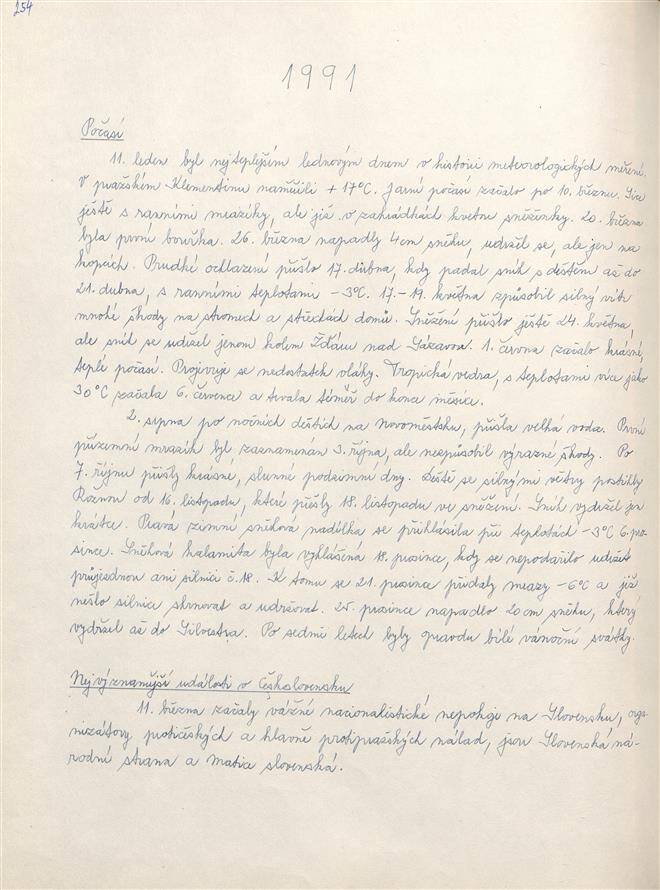 254
1991
Počasí
11. leden byl nejteplejším lednovým dnem v historii meteorologických měření.
V pražském Klementinu naměřili + 17°C. Jarní počasí začalo po 10. březnu. Sice
ještě s ranními mrazíky, ale již v zahrádkách kvetou sněženky. 20. března
byla první bouřka. 26. března napadly 4 cm sněhu, udržel se, ale jen na
kopcích. Prudké ochlazení přišlo 17. dubna, kdy padal sníh s deštěm až do
21. dubna, s ranními teplotami -3°C. 17.-19. května způsobil silný vítr
mnohé škody na stromech a střechách domů. Sněžení přišlo ještě 24. května,
ale sníh se udržel jenom kolem Žďáru nad Sázavou. 1. června začalo krásné,
teplé počasí. Projevuje se nedostatek vláhy. Tropická vedra, s teplotami více jako
30°C začala 6. července a trvala téměř do konce měsíce.
2. srpna po nočních deštích na Novoměstsku, přišla velká voda. První
přízemní mrazík byl zaznamenán 3. října, ale nezpůsobil výrazné škody. Po
7. říjnu přišly krásné, slunné podzimní dny. Deště se silnými větry postihly
od 16. listopadu, které přešly 18. listopadu ve sněžení. Sníh vydržel jen
krátce. Pravá zimní sněhová nadílka se přihlásila při teplotách -3°C 6. pro-
since. Sněhová kalamita byla vyhlášená 18. prosince, kdy se nepodařilo udržet
průjezdnou ani silnici č. 18. K tomu se 21. prosince přidaly mrazy -6°C a již
nešlo silnice shrnovat a udržovat. 25. prosince napadlo 20 cm sněhu, který
vydržel až do Silvestra. Po sedmi letech byly opravdu bílé vánoční svátky.
Nejvýznamější události v Československu
11. března začaly vážné nacionalistické nepokoje na Slovensku, orga-
nizátory protičeských a hlavně protipražských nálad, jsou Slovenská ná-
rodní strana a Matice slovenská.